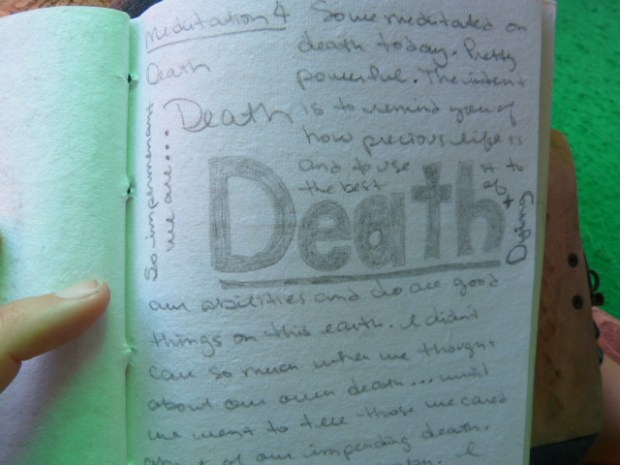 Meditation 4
Death
Death
Some meditated on
death today. Pretty
powerful. The intent
is to remind you of
how precious life is
and to use it to
the best of
So impermanent
we are...
Death
Dying
our abilities and do all good
things on this earth. I didn't
care so much when we thought
about our own death... until
we went to tell those we cared
of our impending death.
I